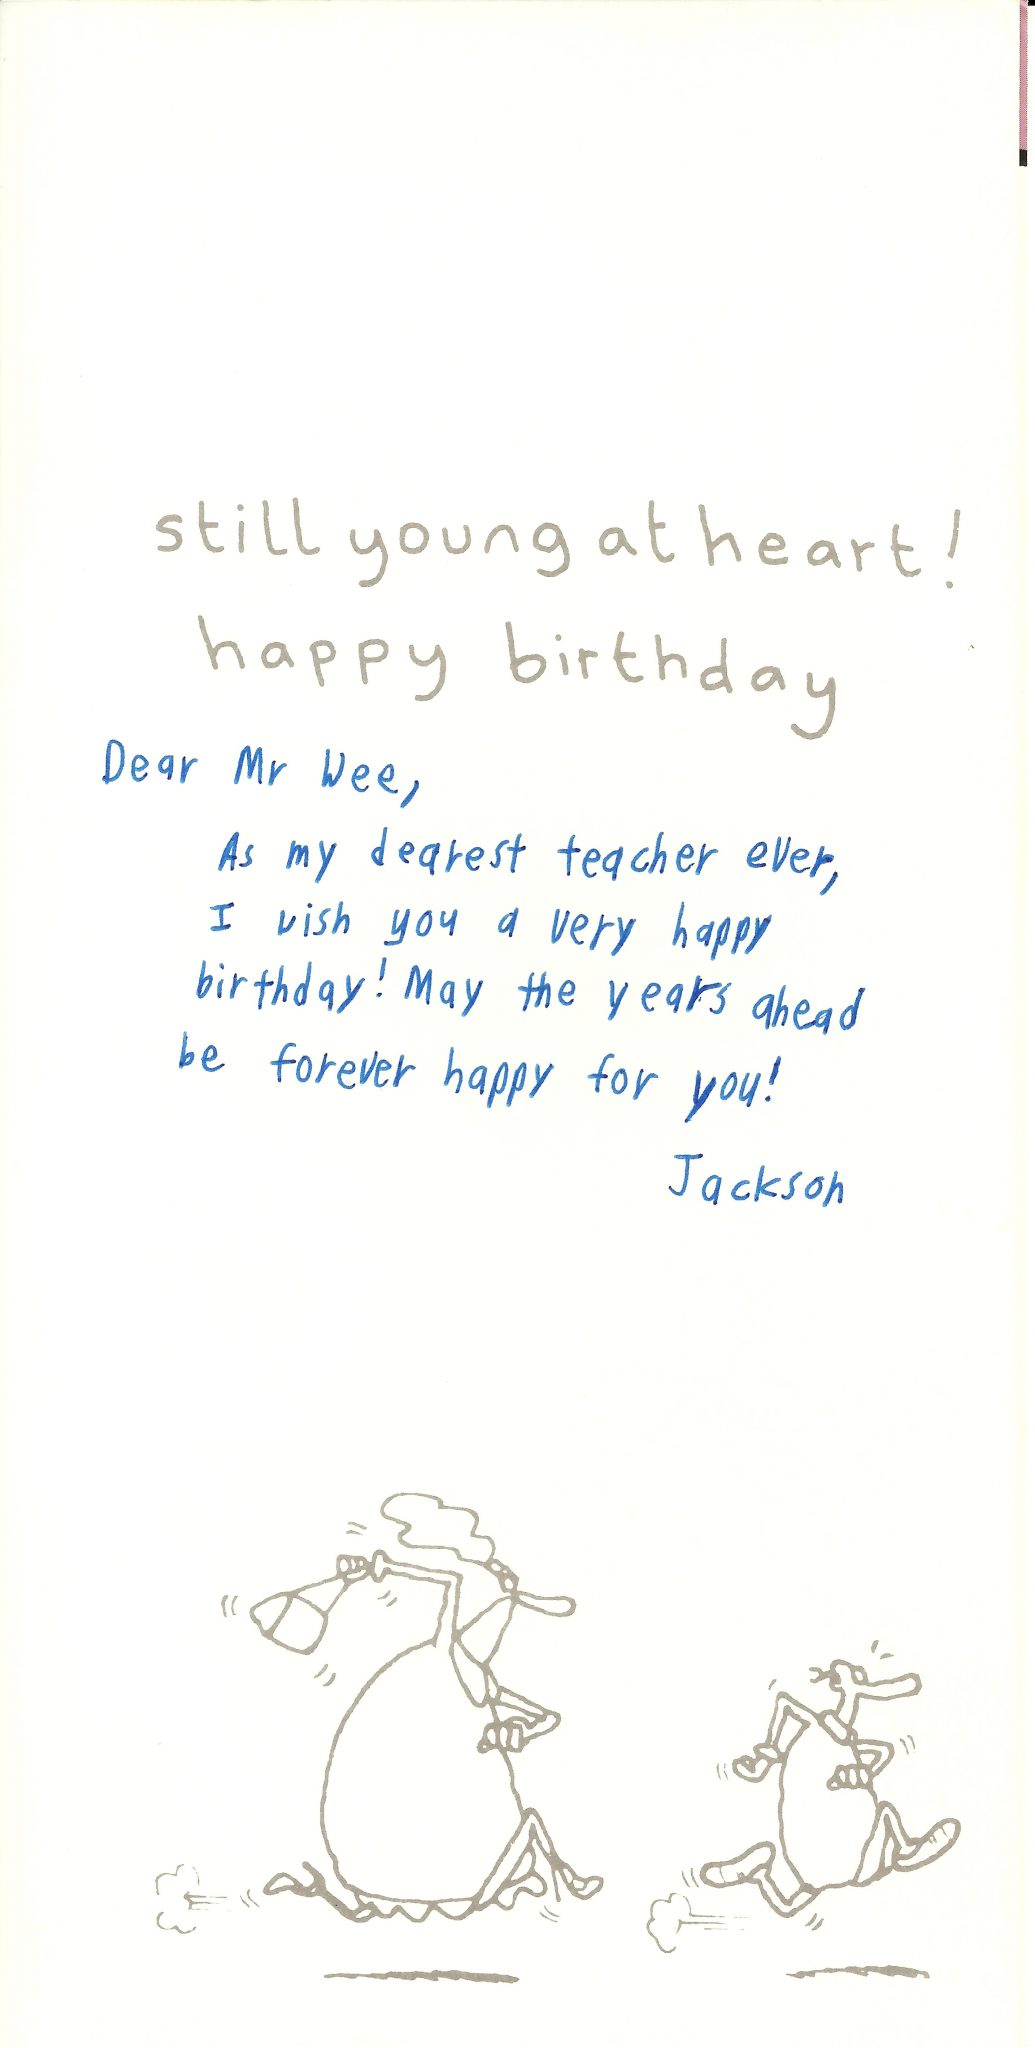 still young at heart!
happy birthday
Dear Mr Wee,
As my dearest teacher ever,
I wish you a very happy
birthday! May the years ahead
be forever happy for you!
Jackson